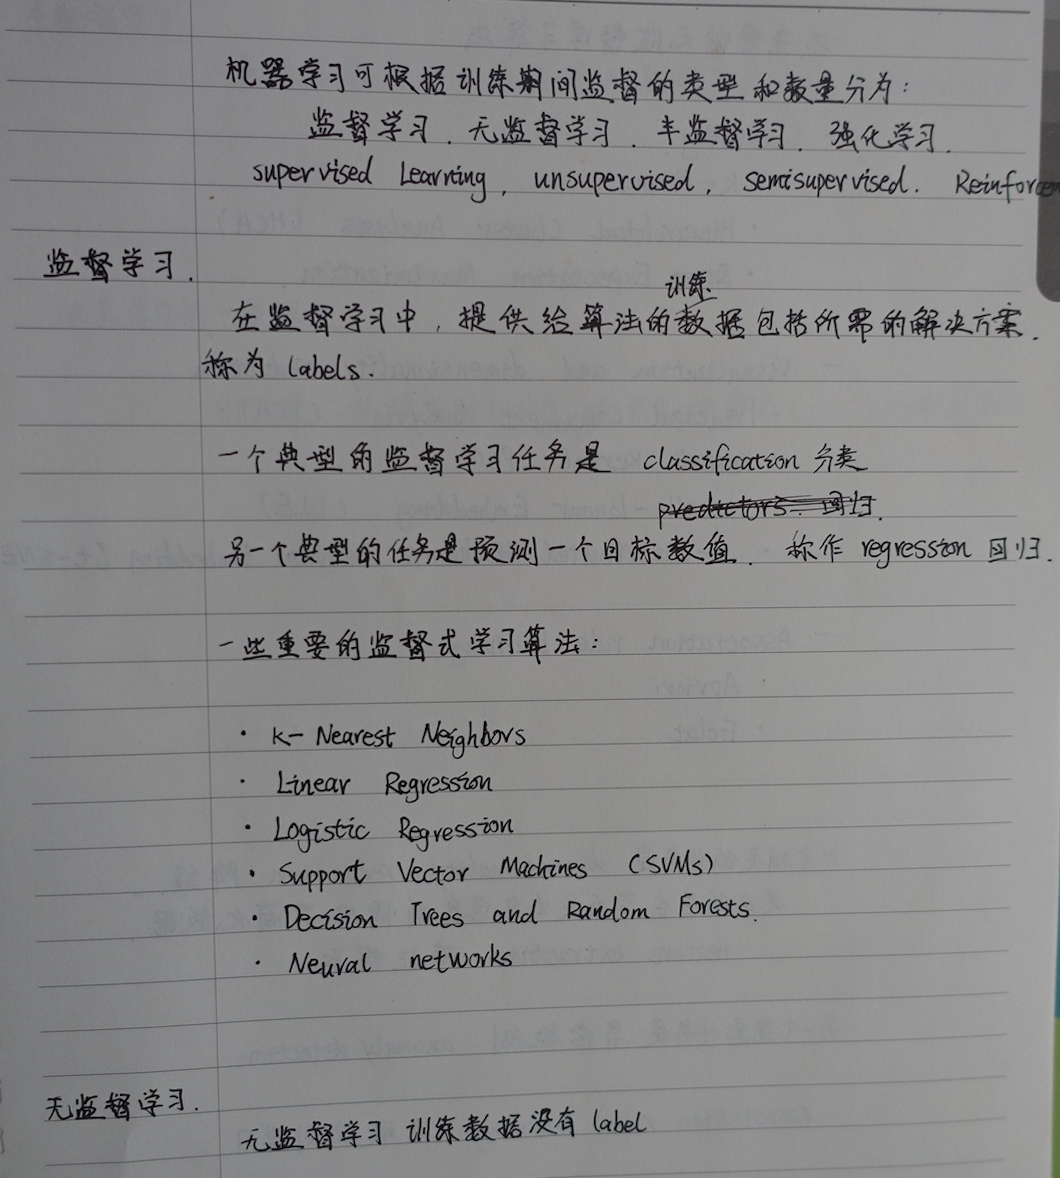 机器学习可根据训练期间监督的类型和数量分为：
监督学习、无监督学习、半监督学习、强化学习.
supervised Learning, unsupervised, semisupervised. Reinforcem
监督学习.
训练
在监督学习中，提供给算法的数据包括所需的解决方案.
称为 labels.
一个典型的监督学习任务是 classification 分类
predictors. 回归.
另一个典型的任务是预测一个目标数值. 称作 regression 回归.
一些重要的监督式学习算法：
· K-Nearest Neighbors
· Linear Regression
· Logistic Regression
· Support Vector Machines (SVMs)
· Decision Trees and Random Forests.
· Neural networks
无监督学习.
无监督学习 训练数据没有 label